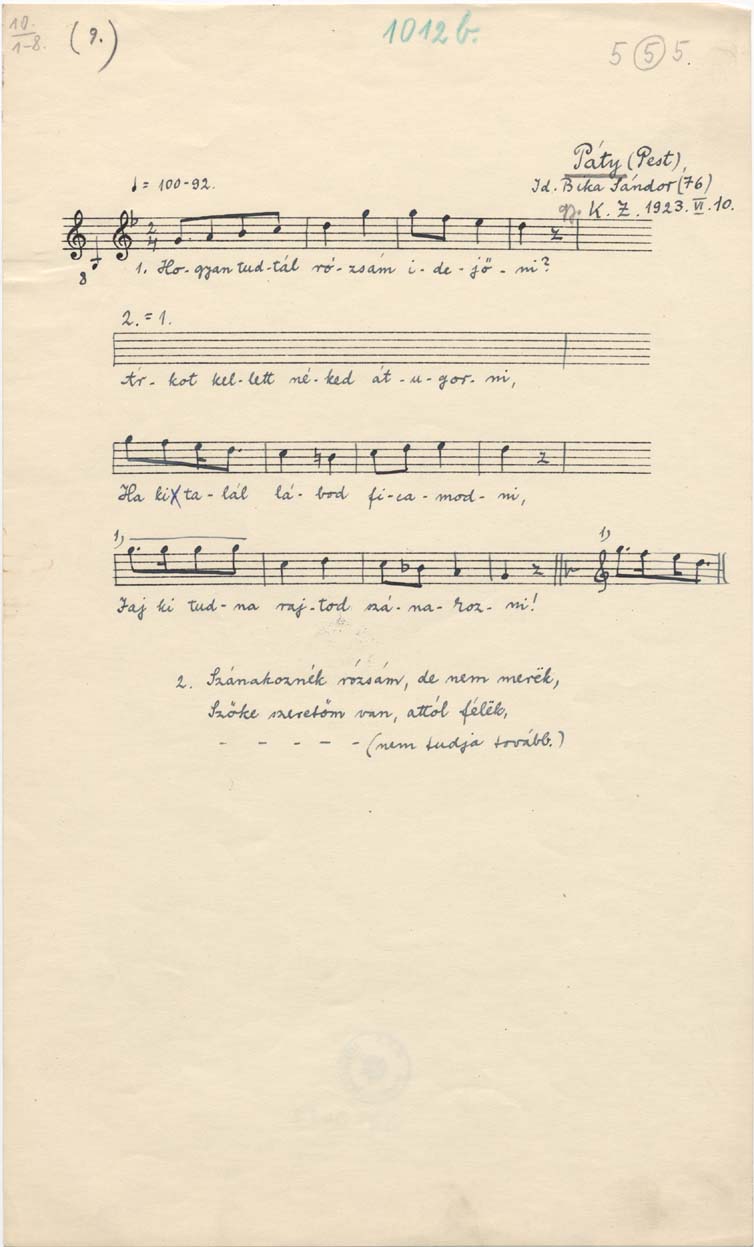 10.
1-8.
(9.)
1012b.
5 5 5.
Páty (Pest),
Id. Bika Sándor (76)
gy. K. Z. 1923. VI. 10.
♩= 100-92.
2
4
8
1. Ho-gyan tud-tál ró-zsám i-de-jő-ni?
2. = 1.
Ár-kot kel-lett né-ked át-u-gor-ni,
Ha ki ta-lál lá-bod fi-ca-mod-ni,
1) 1)
Jaj ki tud-na raj-tod szá-na-koz-ni!
2. Szánakoznék rózsám, de nem merëk,
Szőke szeretőm van, attól félëk,
- - - - - (nem tudja tovább.)